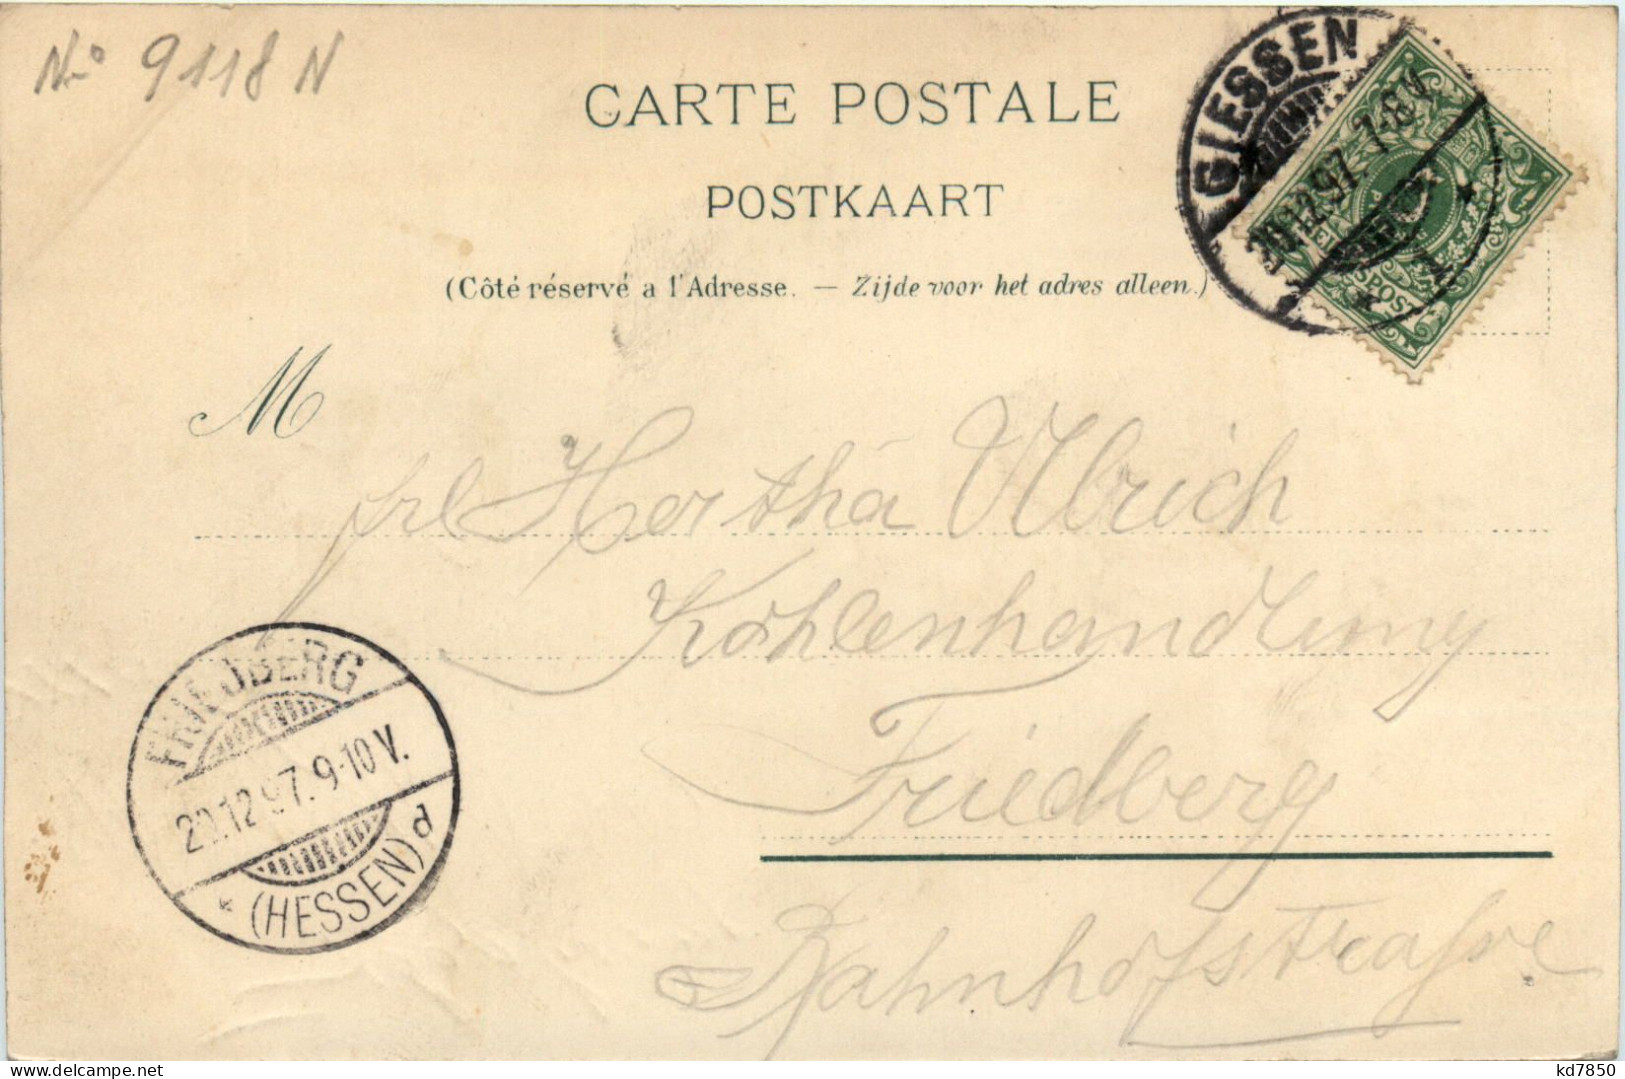 No 9118 N
CARTE POSTALE
POSTKAART
(Côté réservé a l'Adresse. — Zijde voor het adres alleen.)
GIESSEN
20.12.97. 7-8 V.
SPOST
M
Frl Hertha Ulrich
Kohlenhandlung
Friedberg
Bahnhofstraße
FRIEDBERG
20.12.97. 9-10 V.
(HESSEN) d
kd7850